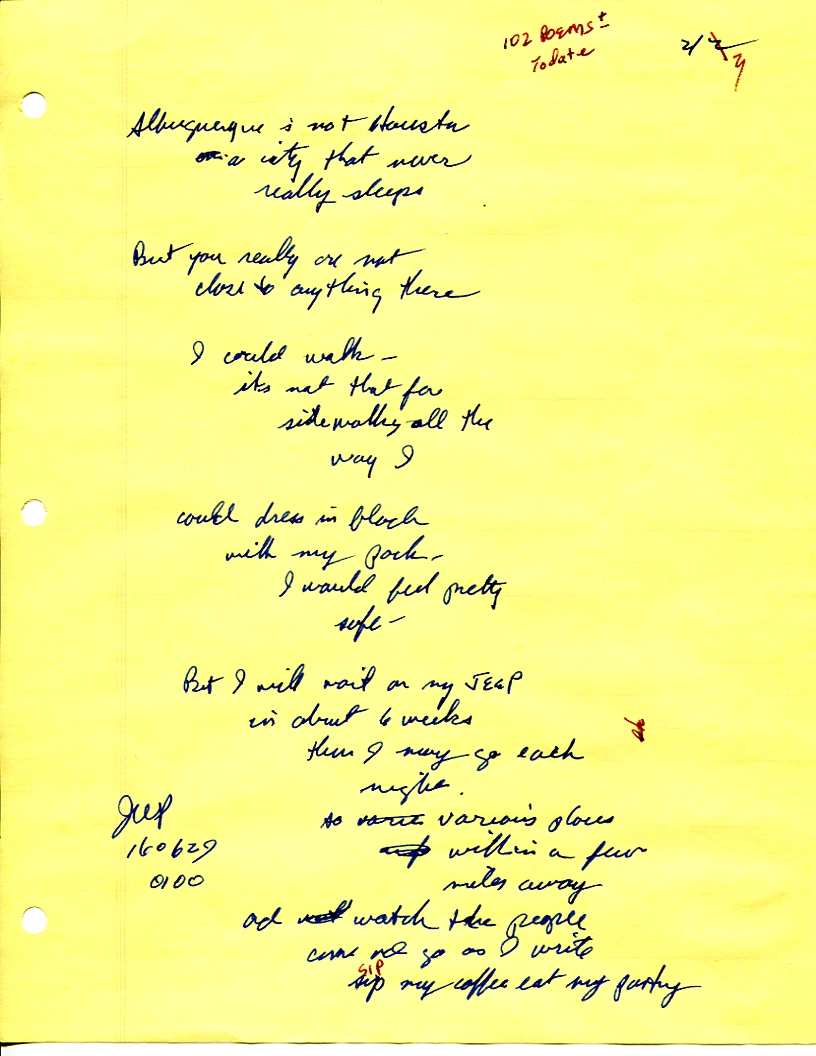 102 Poems ±
Todate
2/
Albuquerque is not Houston
a city that never
really sleeps
But you really are not
close to anything there
I could walk –
its not that far
sidewalks all the
way I
could dress in black
with my pack –
I would feel pretty
safe –
But I will wait on my JEEP
in about 6 weeks
then I may go each
night.
to various places
within a few
miles away
JWP
160629
0100
ad watch the people
come and go as I write
SIP
sip my coffee eat my pastry